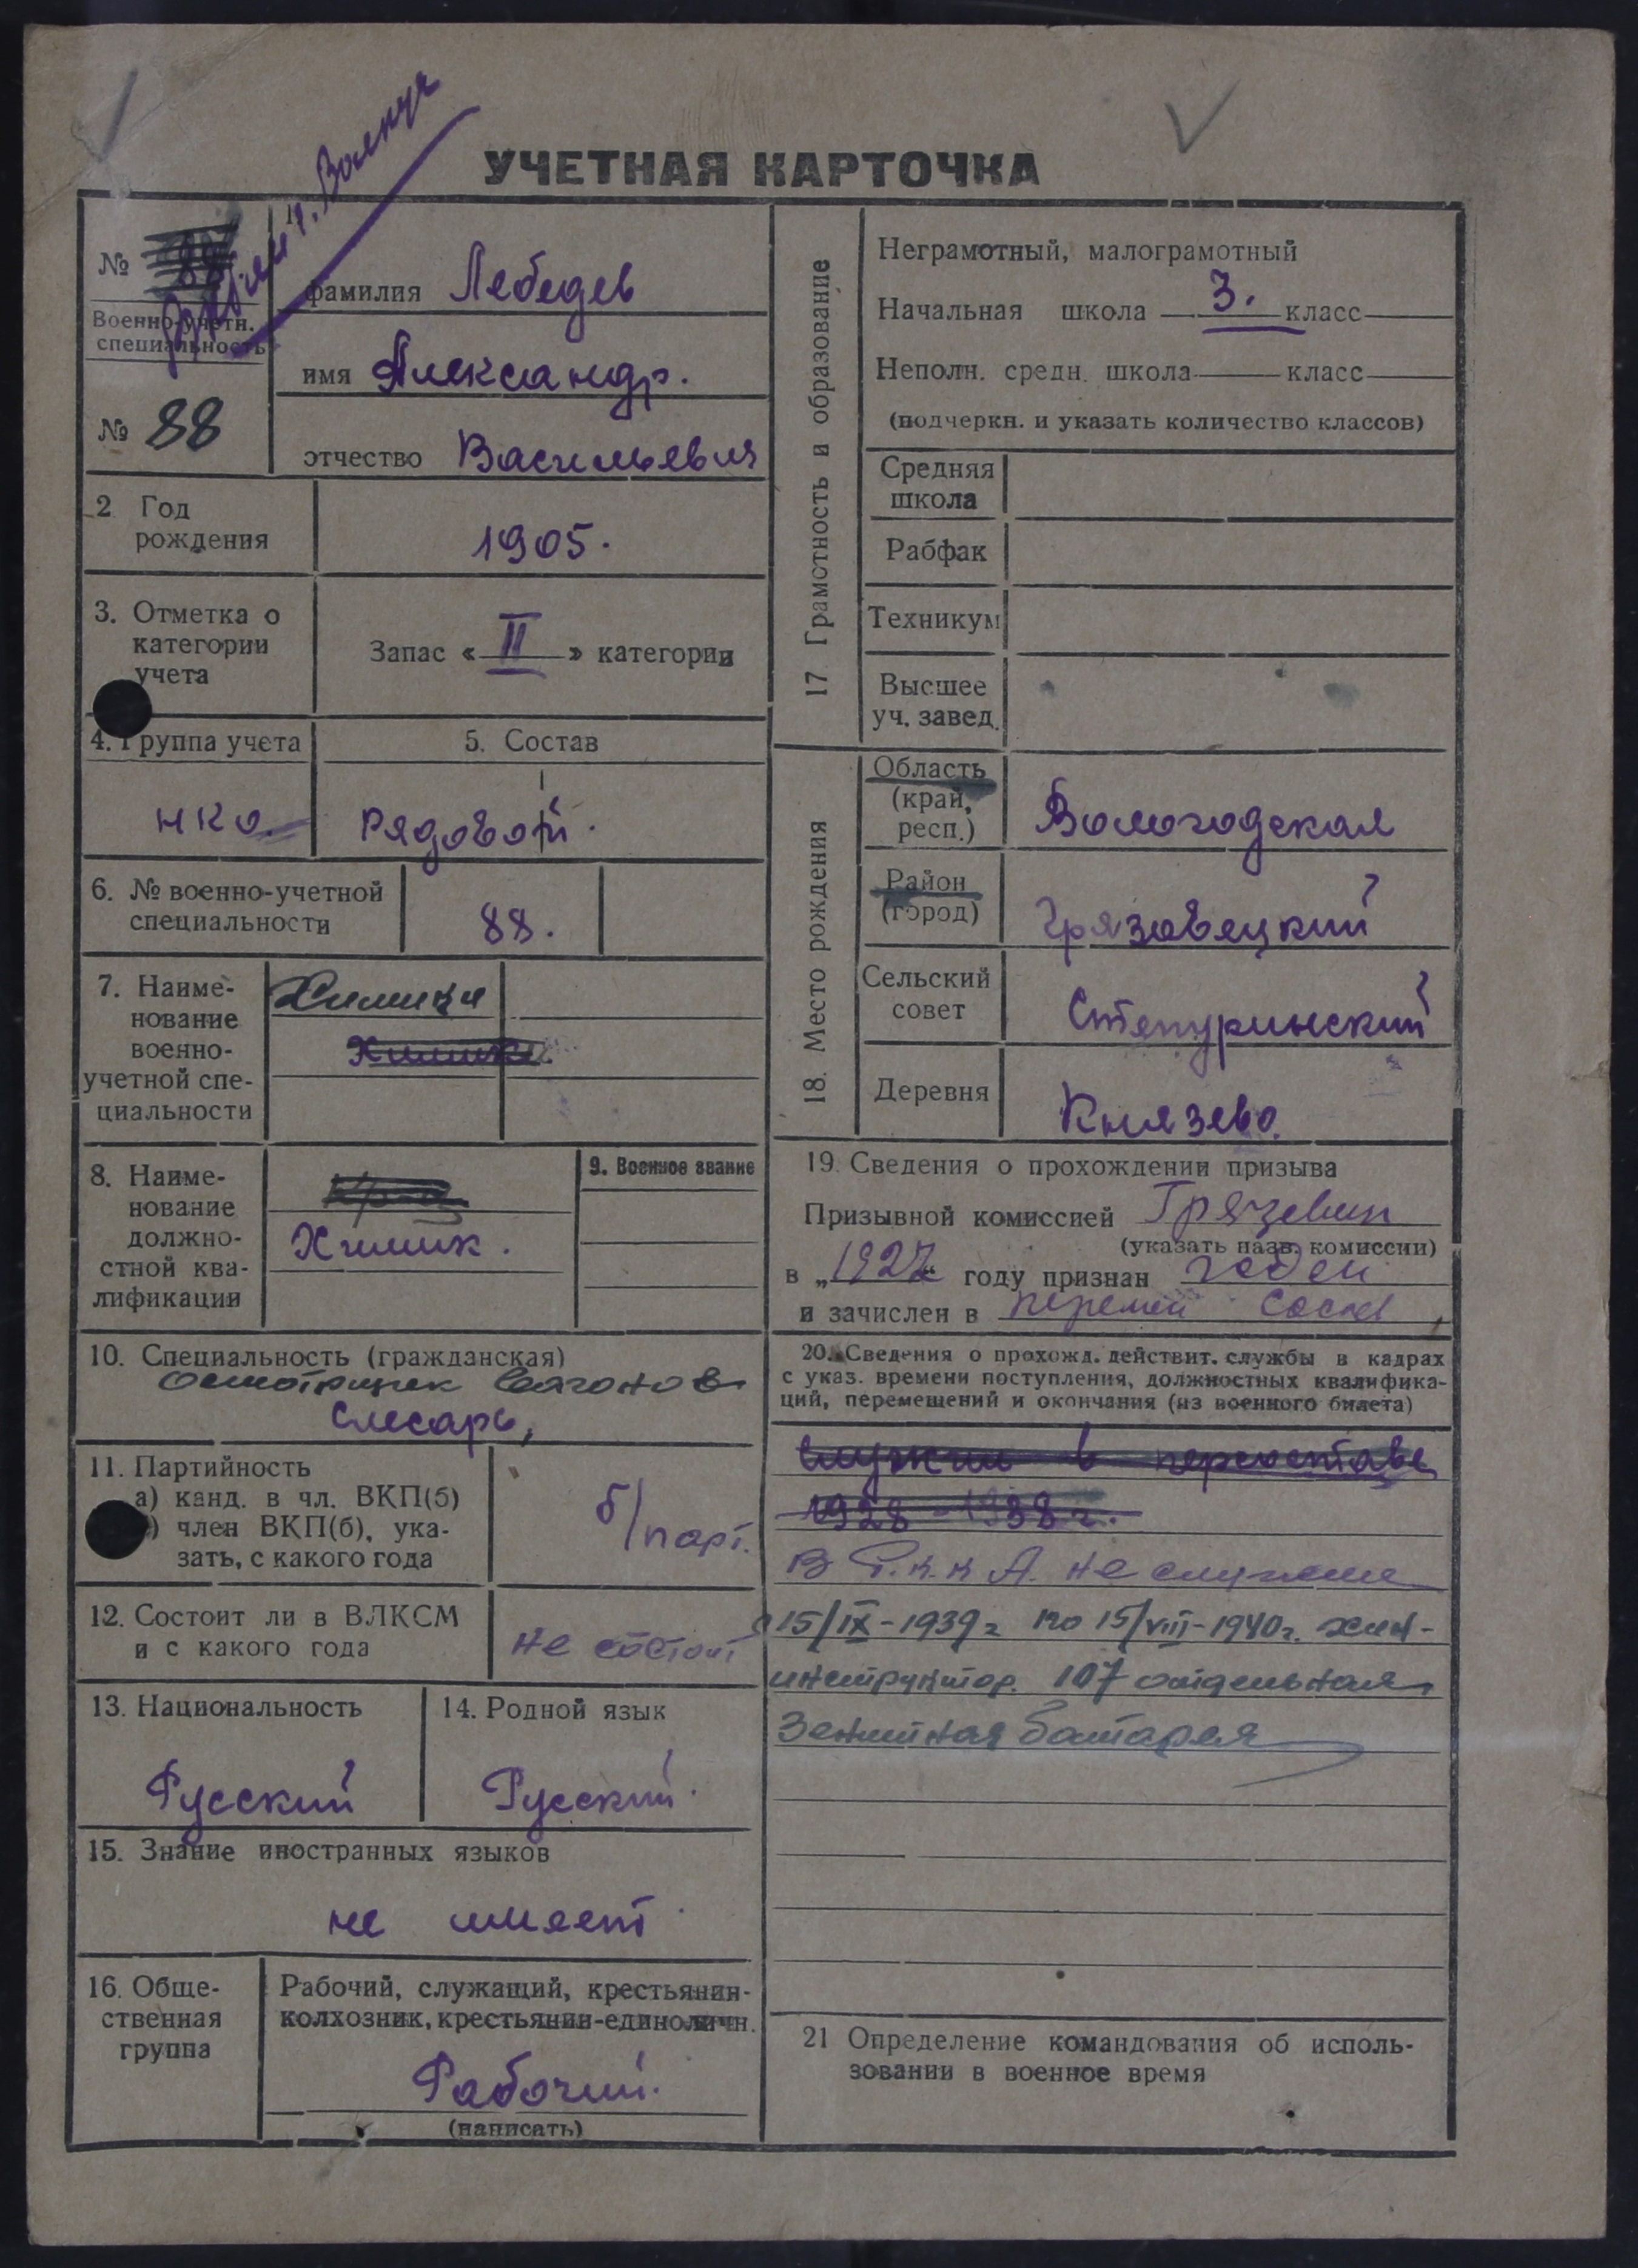 УЧЕТНАЯ КАРТОЧКА
№
Военно-учетн.
специальность
№ 88
1.
фамилия Лебедев
имя Александр.
отчество Васильевич
2 Год
рождения
1905.
3. Отметка о
категории
учета
Запас « II » категории
4. Группа учета
НКО
5. Состав
Рядовой.
6. № военно-учетной
специальности
88.
7. Наиме-
нование
военно-
учетной спе-
циальности
Химики
Химики
8. Наиме-
нование
должно-
стной ква-
лификации
Химик.
9. Военное звание
10. Специальность (гражданская)
Осмотрщик вагонов
Слесарь,
11. Партийность
а) канд. в чл. ВКП(б)
) член ВКП(б), ука-
зать, с какого года
б/парт.
12. Состоит ли в ВЛКСМ
и с какого года
не состоит
13. Национальность
Русский
14. Родной язык
Русский.
15. Знание иностранных языков
не имеет
16. Обще-
ственная
группа
Рабочий, служащий, крестьянин-
колхозник, крестьянин-единоличн.
Рабочий.
(написать)
17 Грамотность и образование
Неграмотный, малограмотный
Начальная школа 3. класс
Неполн. средн. школа класс
(подчеркн. и указать количество классов)
Средняя
школа
Рабфак
Техникум
Высшее
уч. завед.
18. Место рождения
Область
(край,
респ.)
Вологодская
Район
(город)
Грязовецкий
Сельский
совет
Степуринский
Деревня
Князево.
19. Сведения о прохождении призыва
Призывной комиссией
(указать назв. комиссии)
в „1927“ году признан годен
и зачислен в перемен состав
20. Сведения о прохожд. действит. службы в кадрах
с указ. времени поступления, должностных квалифика-
ций, перемещений и окончания (из военного билета)
Служил в
1928-1938 г.
В Р.К.К.А. не служил
15/IX-1939г по 15/VIII-1940г. хим-
инструктор. 107 отдельная
Зенитная батарея
21 Определение командования об исполь-
зовании в военное время